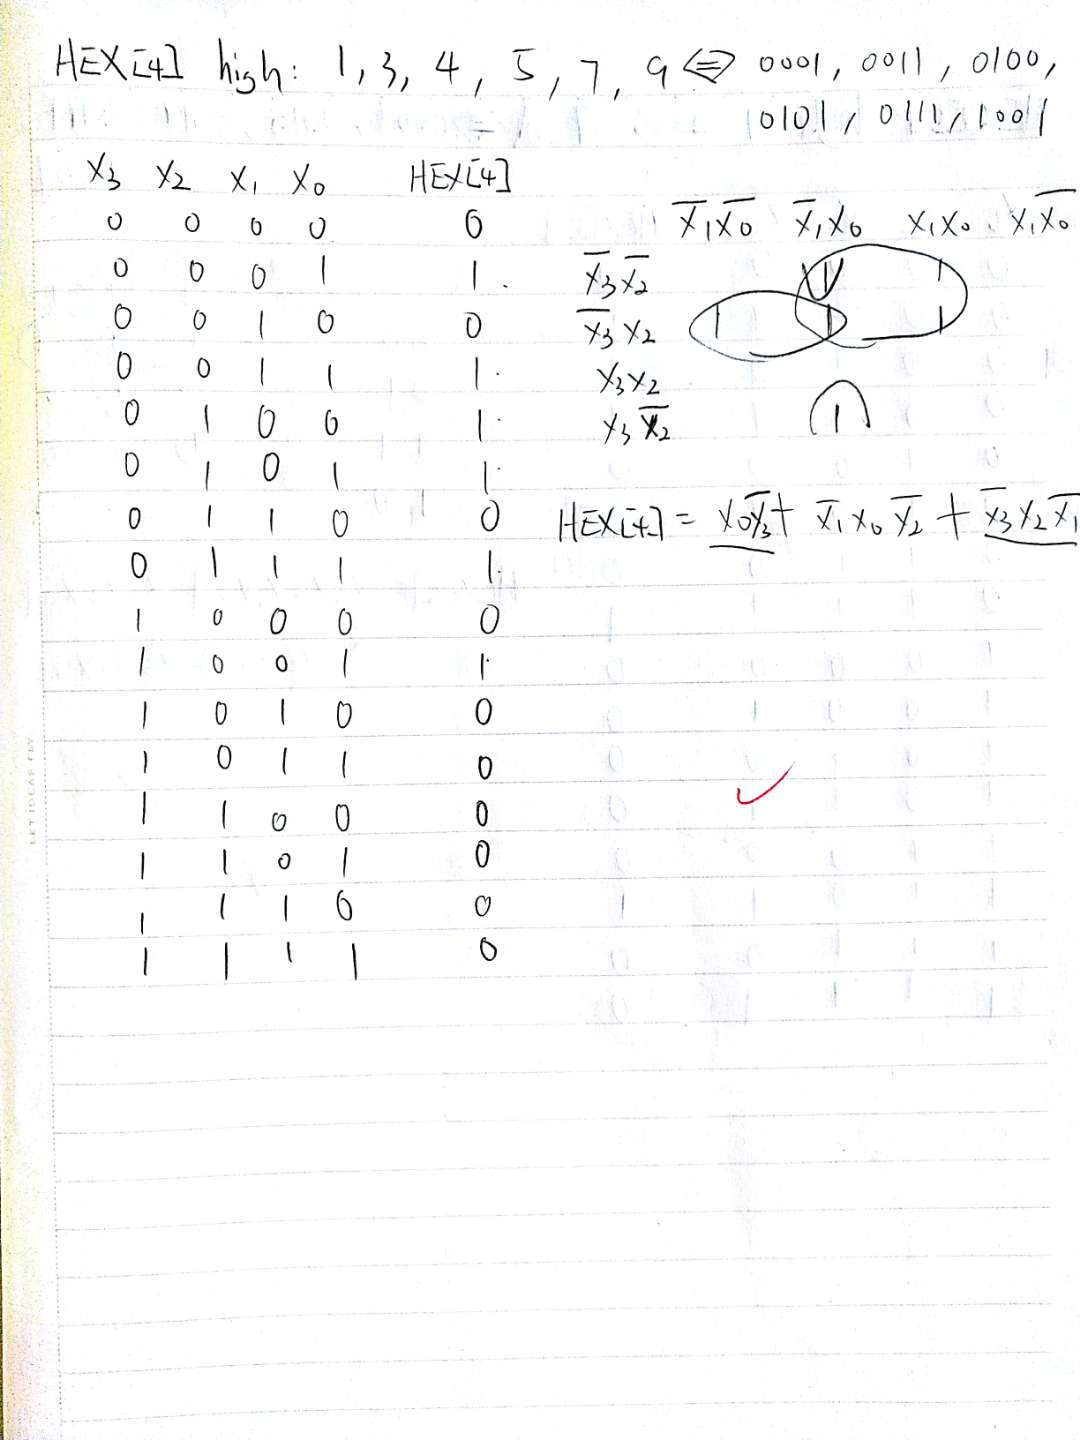 HEX[4] high: 1, 3, 4, 5, 7, 9 ⇔ 0001, 0011, 0100,
0101, 0111, 1001
X₃ X₂ X₁ X₀ HEX[4]
0 0 0 0 0
0 0 0 1 1
0 0 1 0 0
0 0 1 1 1
0 1 0 0 1
0 1 0 1 1
0 1 1 0 0
0 1 1 1 1
1 0 0 0 0
1 0 0 1 1
1 0 1 0 0
1 0 1 1 0
1 1 0 0 0
1 1 0 1 0
1 1 1 0 0
1 1 1 1 0
X̅₁X̅₀ X̅₁X₀ X₁X₀ X₁X̅₀
X̅₃X̅₂ 1 1
X̅₃X₂ 1 1 1
X₃X₂
X₃X̅₂ 1
HEX[4] = X₀X̅₃ + X̅₁X₀X̅₂ + X̅₃X₂X̅₁
LET IDEAS FLY